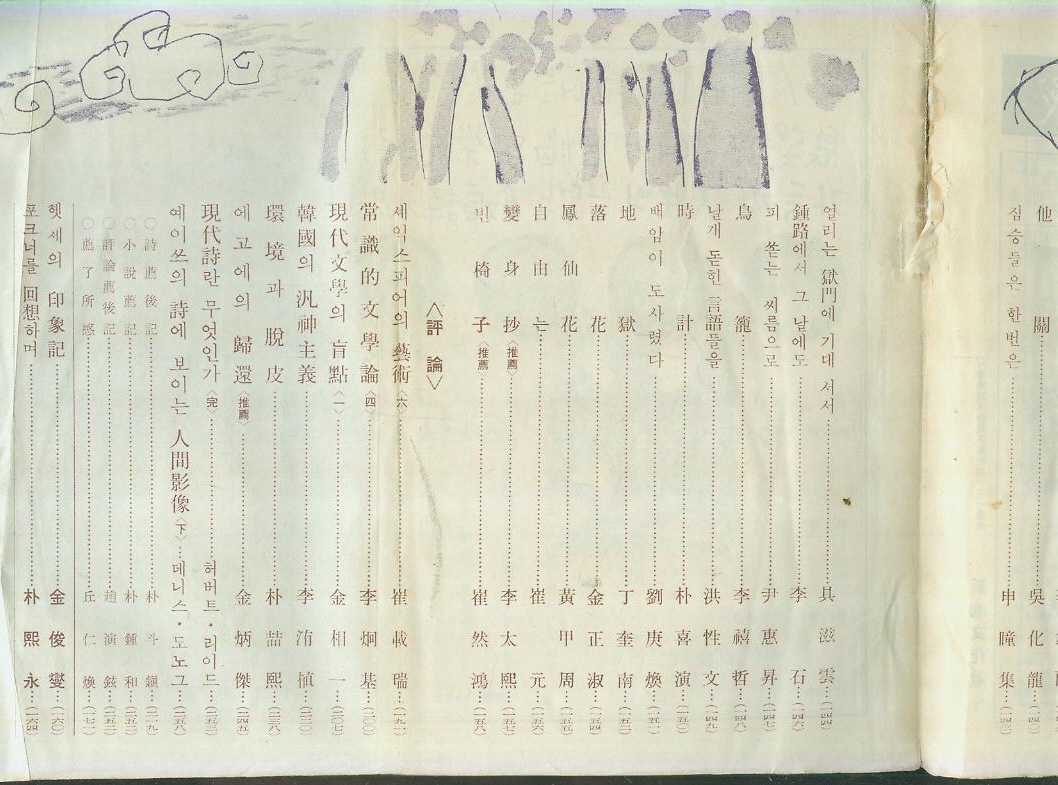 他 關
짐승들은 한번은……申瞳集…(一四
吳化龍
얼리는 獄門에 기대 서서……具滋雲…(一四四)
鍾路에서 그 날에도……李石…(一四六)
피 쏟는 씨름으로……尹惠昇…(一四七)
鳥籠……李禧哲…(一四八)
날개 돋힌 言語들을……洪性文…(一四九)
時計……朴喜演…(一五〇)
배암이 도사렸다……劉庚煥…(一五一)
地獄……丁奎南…(一五二)
落花……金正淑…(一五四)
鳳仙花……黃甲周…(一五五)
自由는……崔元…(一五六)
變身抄〈推薦〉……李太熙…(一五七)
빈 椅子〈推薦〉……崔然鴻…(一五八)
〈評論〉
셰익스피어의 藝術〈六〉……崔載瑞…(一九一)
常識的文學論〈四〉……李炯基…(二〇〇)
現代文學의 盲點〈一〉……金相一…(二〇七)
韓國의 汎神主義……李洧植…(二二〇)
環境과 脫皮……朴喆熙…(二三八)
에고에의 歸還〈推薦〉……金炳傑…(二四五)
現代詩란 무엇인가〈完〉……허버트・리이드…(二五三)
예이쓰의 詩에 보이는 人間影像〈下〉…데니스・도노그…(二五八)
○詩薦後記……朴斗鎭…(二一九)
○小說薦記……朴鍾和…(二五二)
○評論薦後記……趙演鉉…(二五二)
○薦了所感……丘仁煥…(一七一)
헷세의 印象記……金俊燮…(一六〇)
포크너를 回想하며……朴熙永…(一六四)